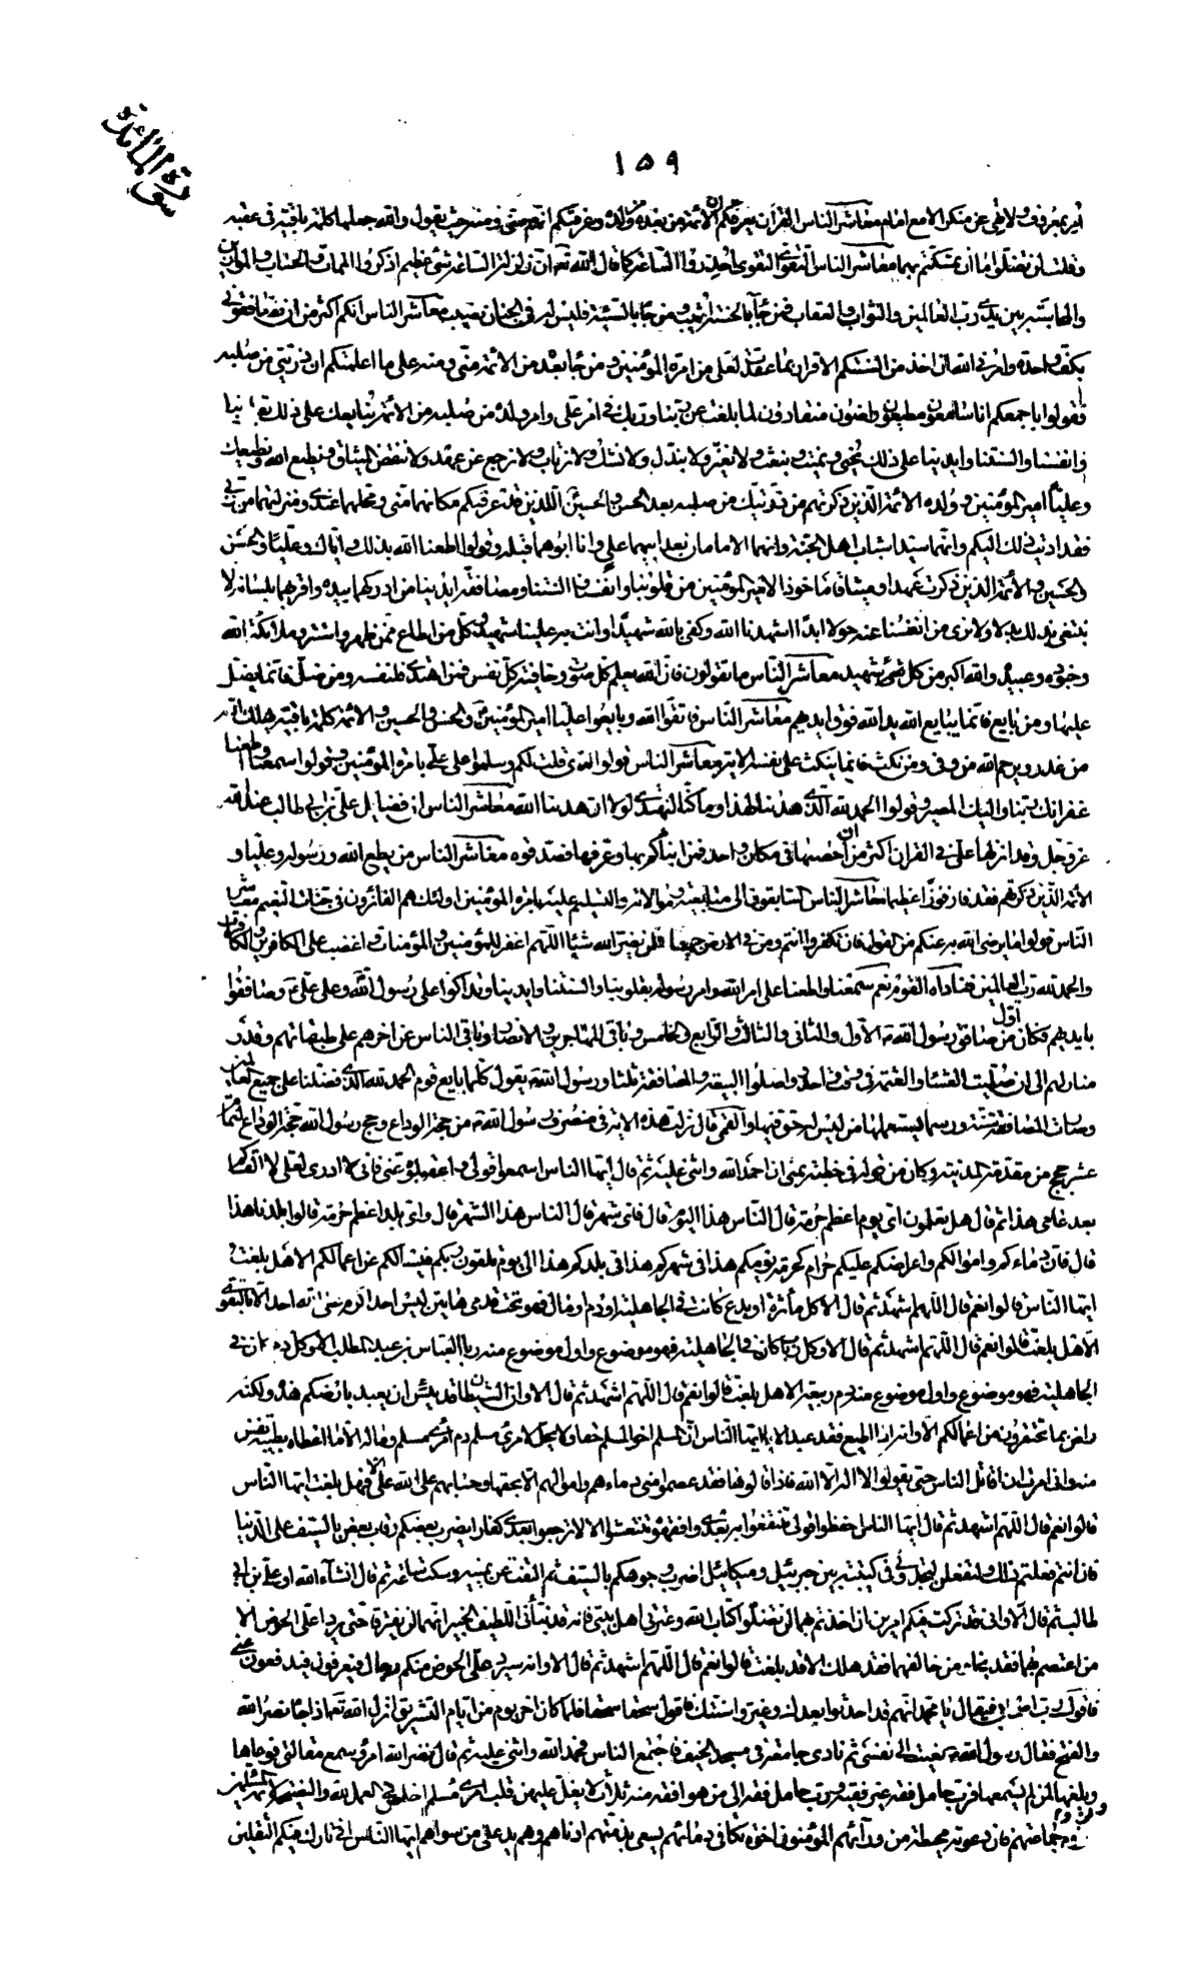 سورة المائدة
١٥٩
أمر بمعروف ولا نهى عن منكر الا مع امام معاشر الناس القرآن يعرفكم ان الأئمة من بعده ولده وعرفتكم انهم منى ومنه حيث يقول الله جعلها كلمة باقية فى عقبه
وقلت لن تضلوا ما ان تمسكتم بهما معاشر الناس التقوى التقوى احذروا الساعة كما قال الله تعالى ان زلزلة الساعة شئ عظيم اذكروا الممات والحساب والموازين
والمحاسبة بين يدى رب العالمين والثواب والعقاب فمن جاء بالحسنة اثيب ومن جاء بالسيئة فليس له فى الجنان نصيب معاشر الناس انكم اكثر من ان تصافقونى
بكف واحدة وامرنى الله ان اخذ من السنتكم الاقرار بما عقدت لعلى من امرة المؤمنين ومن جاء بعده من الائمة منى ومنه على ما اعلمتكم ان ذريتى من صلبه
فقولوا باجمعكم انا سامعون مطيعون راضون منقادون لما بلغت عن ربنا وربك فى امر على وامر ولده من صلبه من الائمة نبايعك على ذلك بقلوبنا
وانفسنا والسنتنا وايدينا على ذلك نحيى ونميت ونبعث ولا نغير ولا نبدل ولا نشك ولا نرتاب ولا نرجع عن عهد ولا ننقض الميثاق ونطيع الله ونطيعك
وعليا امير المؤمنين وولده الائمة الذين ذكرتهم من ذريتك من صلبه بعد الحسن والحسين اللذين قد عرفتكم مكانهما منى ومحلهما عندى ومنزلتهما من ربى
فقد اديت ذلك اليكم وانهما سيدا شباب اهل الجنة وانهما الامامان بعد ابيهما على وانا ابوهما قبله وقولوا اطعنا الله بذلك واياك وعليا والحسن
والحسين والائمة الذين ذكرت عهدا وميثاقا مأخوذا لامير المؤمنين من قلوبنا وانفسنا والسنتنا ومصافقة ايدينا من ادركهما بيده واقر بهما بلسانه لا
نبتغى بذلك بدلا ولا نرى من انفسنا عنه حولا ابدا اشهدنا الله وكفى بالله شهيدا وانت به علينا شهيد وكل من اطاع ممن ظهر واستتر وملائكة الله
وجنوده وعبيده والله اكبر من كل شهيد معاشر الناس ما تقولون فان الله يعلم كل صوت وخافية كل نفس فمن اهتدى فلنفسه ومن ضل فانما يضل
عليها ومن بايع فانما يبايع الله يد الله فوق ايديهم معاشر الناس فاتقوا الله وبايعوا عليا امير المؤمنين والحسن والحسين والائمة كلمة باقية يهلك الله
من غدر ويرحم الله من وفى ومن نكث فانما ينكث على نفسه الاية معاشر الناس قولوا الذى قلت لكم وسلموا على على بامرة المؤمنين وقولوا سمعنا واطعنا
غفرانك ربنا واليك المصير وقولوا الحمد لله الذى هدانا لهذا وما كنا لنهتدى لولا ان هدينا الله معاشر الناس ان فضايل على بن ابى طالب عند الله
عز وجل وقد انزلها على فى القرآن اكثر من ان احصيها فى مكان واحد فمن انبأكم بها وعرفها فصدقوه معاشر الناس من يطع الله ورسوله وعليا و
الائمة الذين ذكرتهم فقد فاز فوزا عظيما معاشر الناس السابقون الى مبايعته وموالاته والتسليم عليه بامرة المؤمنين اولئك هم الفائزون فى جنات النعيم معاشر
الناس قولوا ما يرضى الله به عنكم من القول فان تكفروا انتم ومن فى الارض جميعا فلن يضر الله شيئا اللهم اغفر للمؤمنين والمؤمنات واغضب على الكافرين والكافرات
والحمد لله رب العالمين فناداه القوم نعم سمعنا واطعنا على امر الله وامر رسوله بقلوبنا والسنتنا وايدينا وتداكوا على رسول الله وعلى على وصافقوا
بايديهم فكان اول من صافق رسول الله الاول والثانى والثالث والرابع والخامس وباقى المهاجرين والانصار وباقى الناس عن اخرهم على طبقاتهم وقدر
منازلهم الى ان صليت العشاء والعتمة فى وقت واحد واصلوا البيعة والمصافقة ثلثا ورسول الله يقول كلما بايع قوم الحمد لله الذى فضلنا على جميع العالمين
وصارت المصافقة سنة ورسما يستعملها من ليس له حق فيها والقمى قال نزلت هذه الاية فى منصرف رسول الله من حجة الوداع وحج رسول الله حجة الوداع لتمام
عشر حجج من مقدمه المدينة وكان من قوله فى خطبته بمنى ان احمد الله واثنى عليه ثم قال ايها الناس اسمعوا قولى واعقلوه عنى فانى لا ادرى لعلى لا القاكم
بعد عامى هذا ثم قال هل تعلمون اى يوم اعظم حرمة قال الناس هذا اليوم قال فاى شهر قال الناس هذا الشهر قال واى بلد اعظم حرمة قالوا بلدنا هذا
قال فان دماءكم واموالكم واعراضكم عليكم حرام كحرمة يومكم هذا فى شهركم هذا فى بلدكم هذا الى يوم تلقون ربكم فيسئلكم عن اعمالكم الا هل بلغت
ايها الناس قالوا نعم قال اللهم اشهد ثم قال الا كل مأثرة او بدع كانت فى الجاهلية او دم او مال فهو تحت قدمى هاتين ليس احد اكرم من احد الا بالتقوى
الا هل بلغت قالوا نعم قال اللهم اشهد ثم قال الا وكل ربا كان فى الجاهلية فهو موضوع واول موضوع منه ربا العباس بن عبد المطلب الا وكل دم كان فى
الجاهلية فهو موضوع واول موضوع منه دم ربيعة الا هل بلغت قالوا نعم قال اللهم اشهد ثم قال الا وان الشيطان قد يئس ان يعبد بارضكم هذه ولكنه
راض بما تحتقرون من اعمالكم الا وانه اذا اطيع فقد عبد الا ايها الناس ان المسلم اخو المسلم حقا ولا يحل لامرئ مسلم دم امرئ مسلم وماله الا ما اعطاه بطيبة نفس
منه وانى امرت ان اقاتل الناس حتى يقولوا لا اله الا الله فاذا قالوها فقد عصموا منى دماءهم واموالهم الا بحقها وحسابهم على الله الا فهل بلغت ايها الناس
قالوا نعم قال اللهم اشهد ثم قال ايها الناس احفظوا قولى تنتفعوا به بعدى وافقهوه تنتعشوا الا لا ترجعوا بعدى كفارا يضرب بعضكم رقاب بعض بالسيف على الدنيا
فان انتم فعلتم ذلك ولتفعلن لتجدونى فى كتيبة بين جبرئيل وميكائيل اضرب وجوهكم بالسيف ثم التفت عن يمينه وسكت ساعة ثم قال انشاء الله او على بن ابى
طالب ثم قال الا وانى قد تركت فيكم امرين ان اخذتم بهما لن تضلوا كتاب الله وعترتى اهل بيتى فانه قد نبأنى اللطيف الخبير انهما لن يفترقا حتى يردا على الحوض الا
من اعتصم بهما فقد نجا ومن خالفهما فقد هلك الا هل بلغت قالوا نعم قال اللهم اشهد ثم قال الا وانه سيرد على الحوض منكم رجال فيعرفونى فيدفعون عنى
فاقول رب اصحابى فيقال يا محمد انهم قد احدثوا بعدك وغيروا سنتك فاقول سحقا سحقا فلما كان اخر يوم من ايام التشريق انزل الله تعالى اذا جاء نصر الله
والفتح فقال رسول الله نعيت الى نفسى ثم نادى جامعة فى مسجد الخيف فاجتمع الناس فحمد الله واثنى عليه ثم قال نضر الله امرء سمع مقالتى فوعاها
وبلغها لمن لم يسمعها فرب حامل فقه غير فقيه ورب حامل فقه الى من هو افقه منه ثلاث لا يغل عليهن قلب امرئ مسلم اخلاص العمل لله والنصيحة لائمة المسلمين
ولزوم جماعتهم فان دعوته محيطة من ورائهم المؤمنون اخوة تتكافى دمائهم يسعى بذمتهم ادناهم وهم يد على من سواهم ايها الناس انى تارك فيكم الثقلين